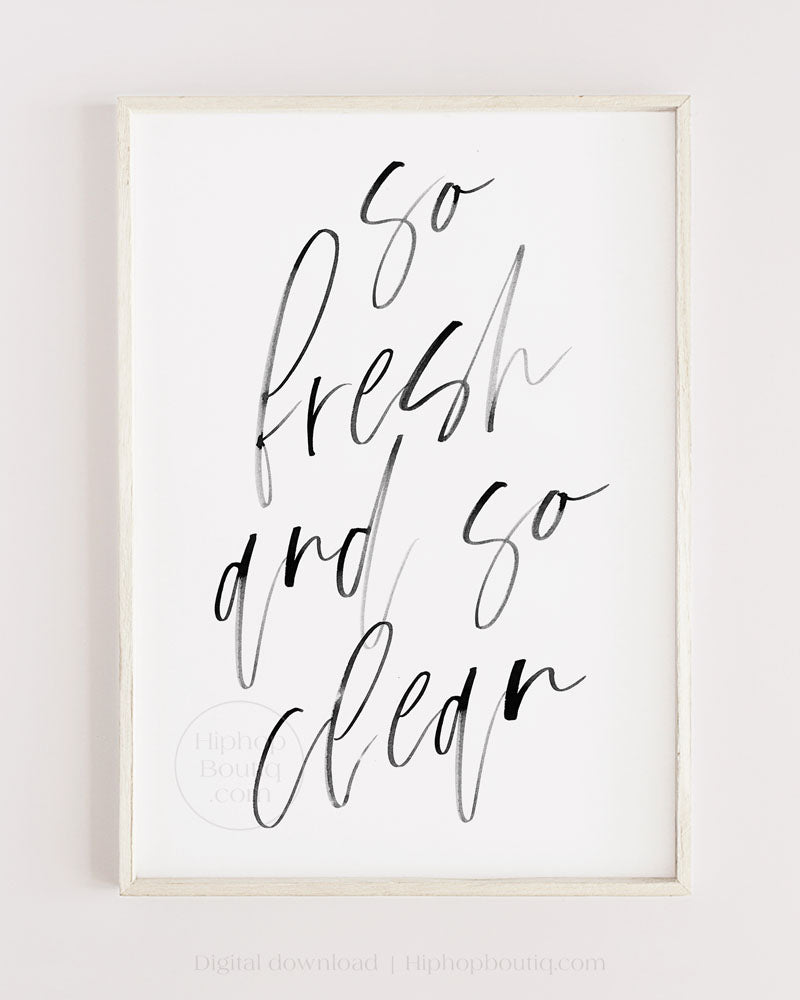 so
fresh
and so
clean
Hiphop
Boutiq
.com
Digital download | Hiphopboutiq.com